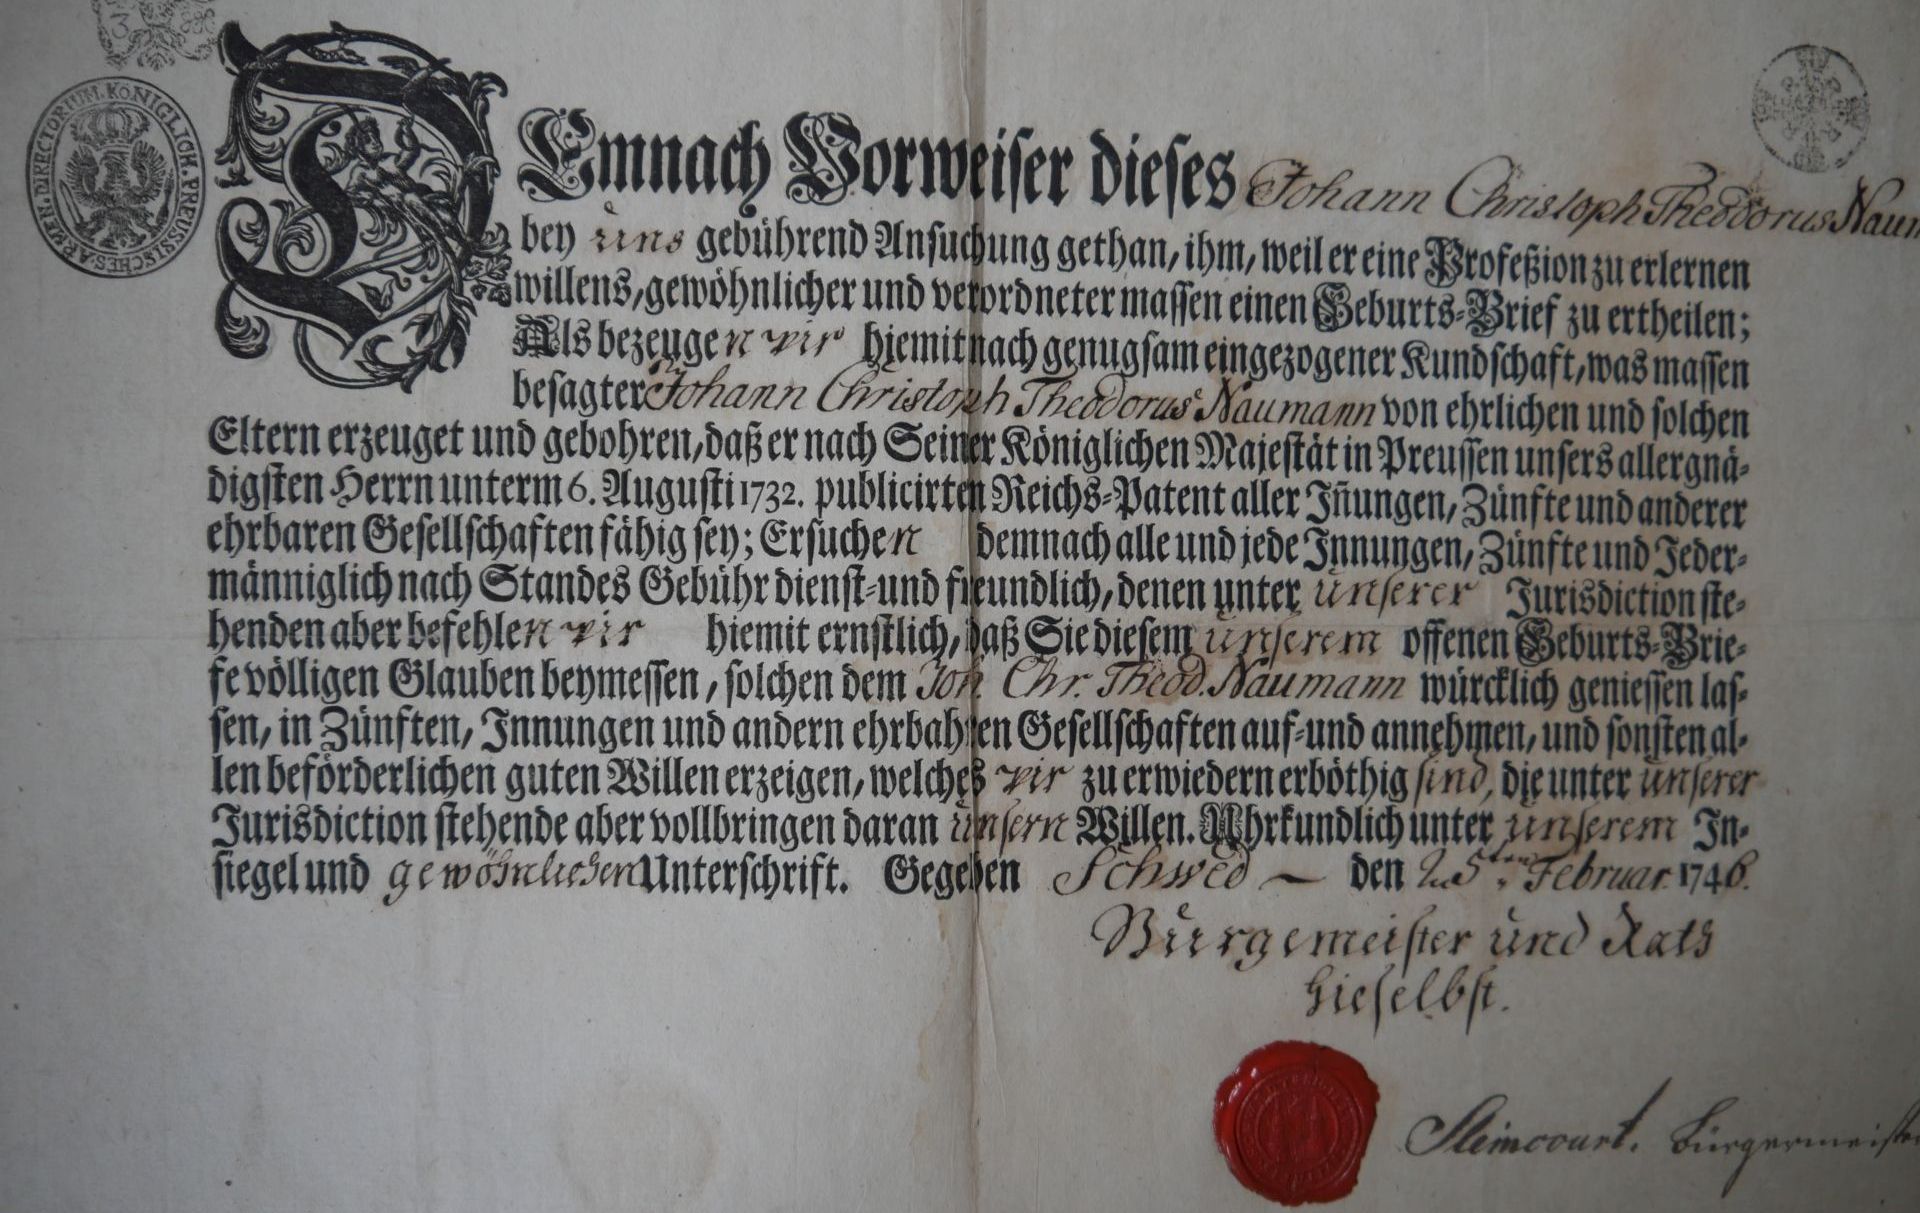 3
KÖNIGLICH. PREUSSISCHES. ARMEN. DIRECTORIUM.
DEmnach Vorweiser dieses Johann Christoph Theodorus Naum
bey uns gebührend Ansuchung gethan, ihm, weil er eine Profeßion zu erlernen
willens, gewöhnlicher und verordneter massen einen Geburts-Brief zu ertheilen;
Als bezeugen wir hiemit nach genugsam eingezogener Kundschaft, was massen
besagter Johann Christoph Theodorus Naumann von ehrlichen und solchen
Eltern erzeuget und gebohren, daß er nach Seiner Königlichen Majestät in Preussen unsers allergnä-
digsten Herrn unterm 6. Augusti 1732. publicirten Reichs-Patent aller Iñungen, Zünfte und anderer
ehrbaren Gesellschaften fähig sey; Ersuchen demnach alle und jede Innungen, Zünfte und Jeder-
männiglich nach Standes Gebühr dienst-und freundlich, denen unter unserer Jurisdiction ste-
henden aber befehlen wir hiemit ernstlich, daß Sie diesem unserem offenen Geburts-Brie-
fe völligen Glauben beymessen, solchen dem Joh. Chr. Theod. Naumann würcklich geniessen las-
sen, in Zünften, Innungen und andern ehrbahren Gesellschaften auf-und annehmen, und sonsten al-
len beförderlichen guten Willen erzeigen, welches wir zu erwiedern erböthig sind, die unter unserer
Jurisdiction stehende aber vollbringen daran unsern Willen. Uhrkundlich unter unserem In-
siegel und gewöhnlichen Unterschrift. Gegeben Schwed den 25ten Februar. 1746.
Bürgemeister und Raths
hieselbst.
Steincourt. Bürgermeister